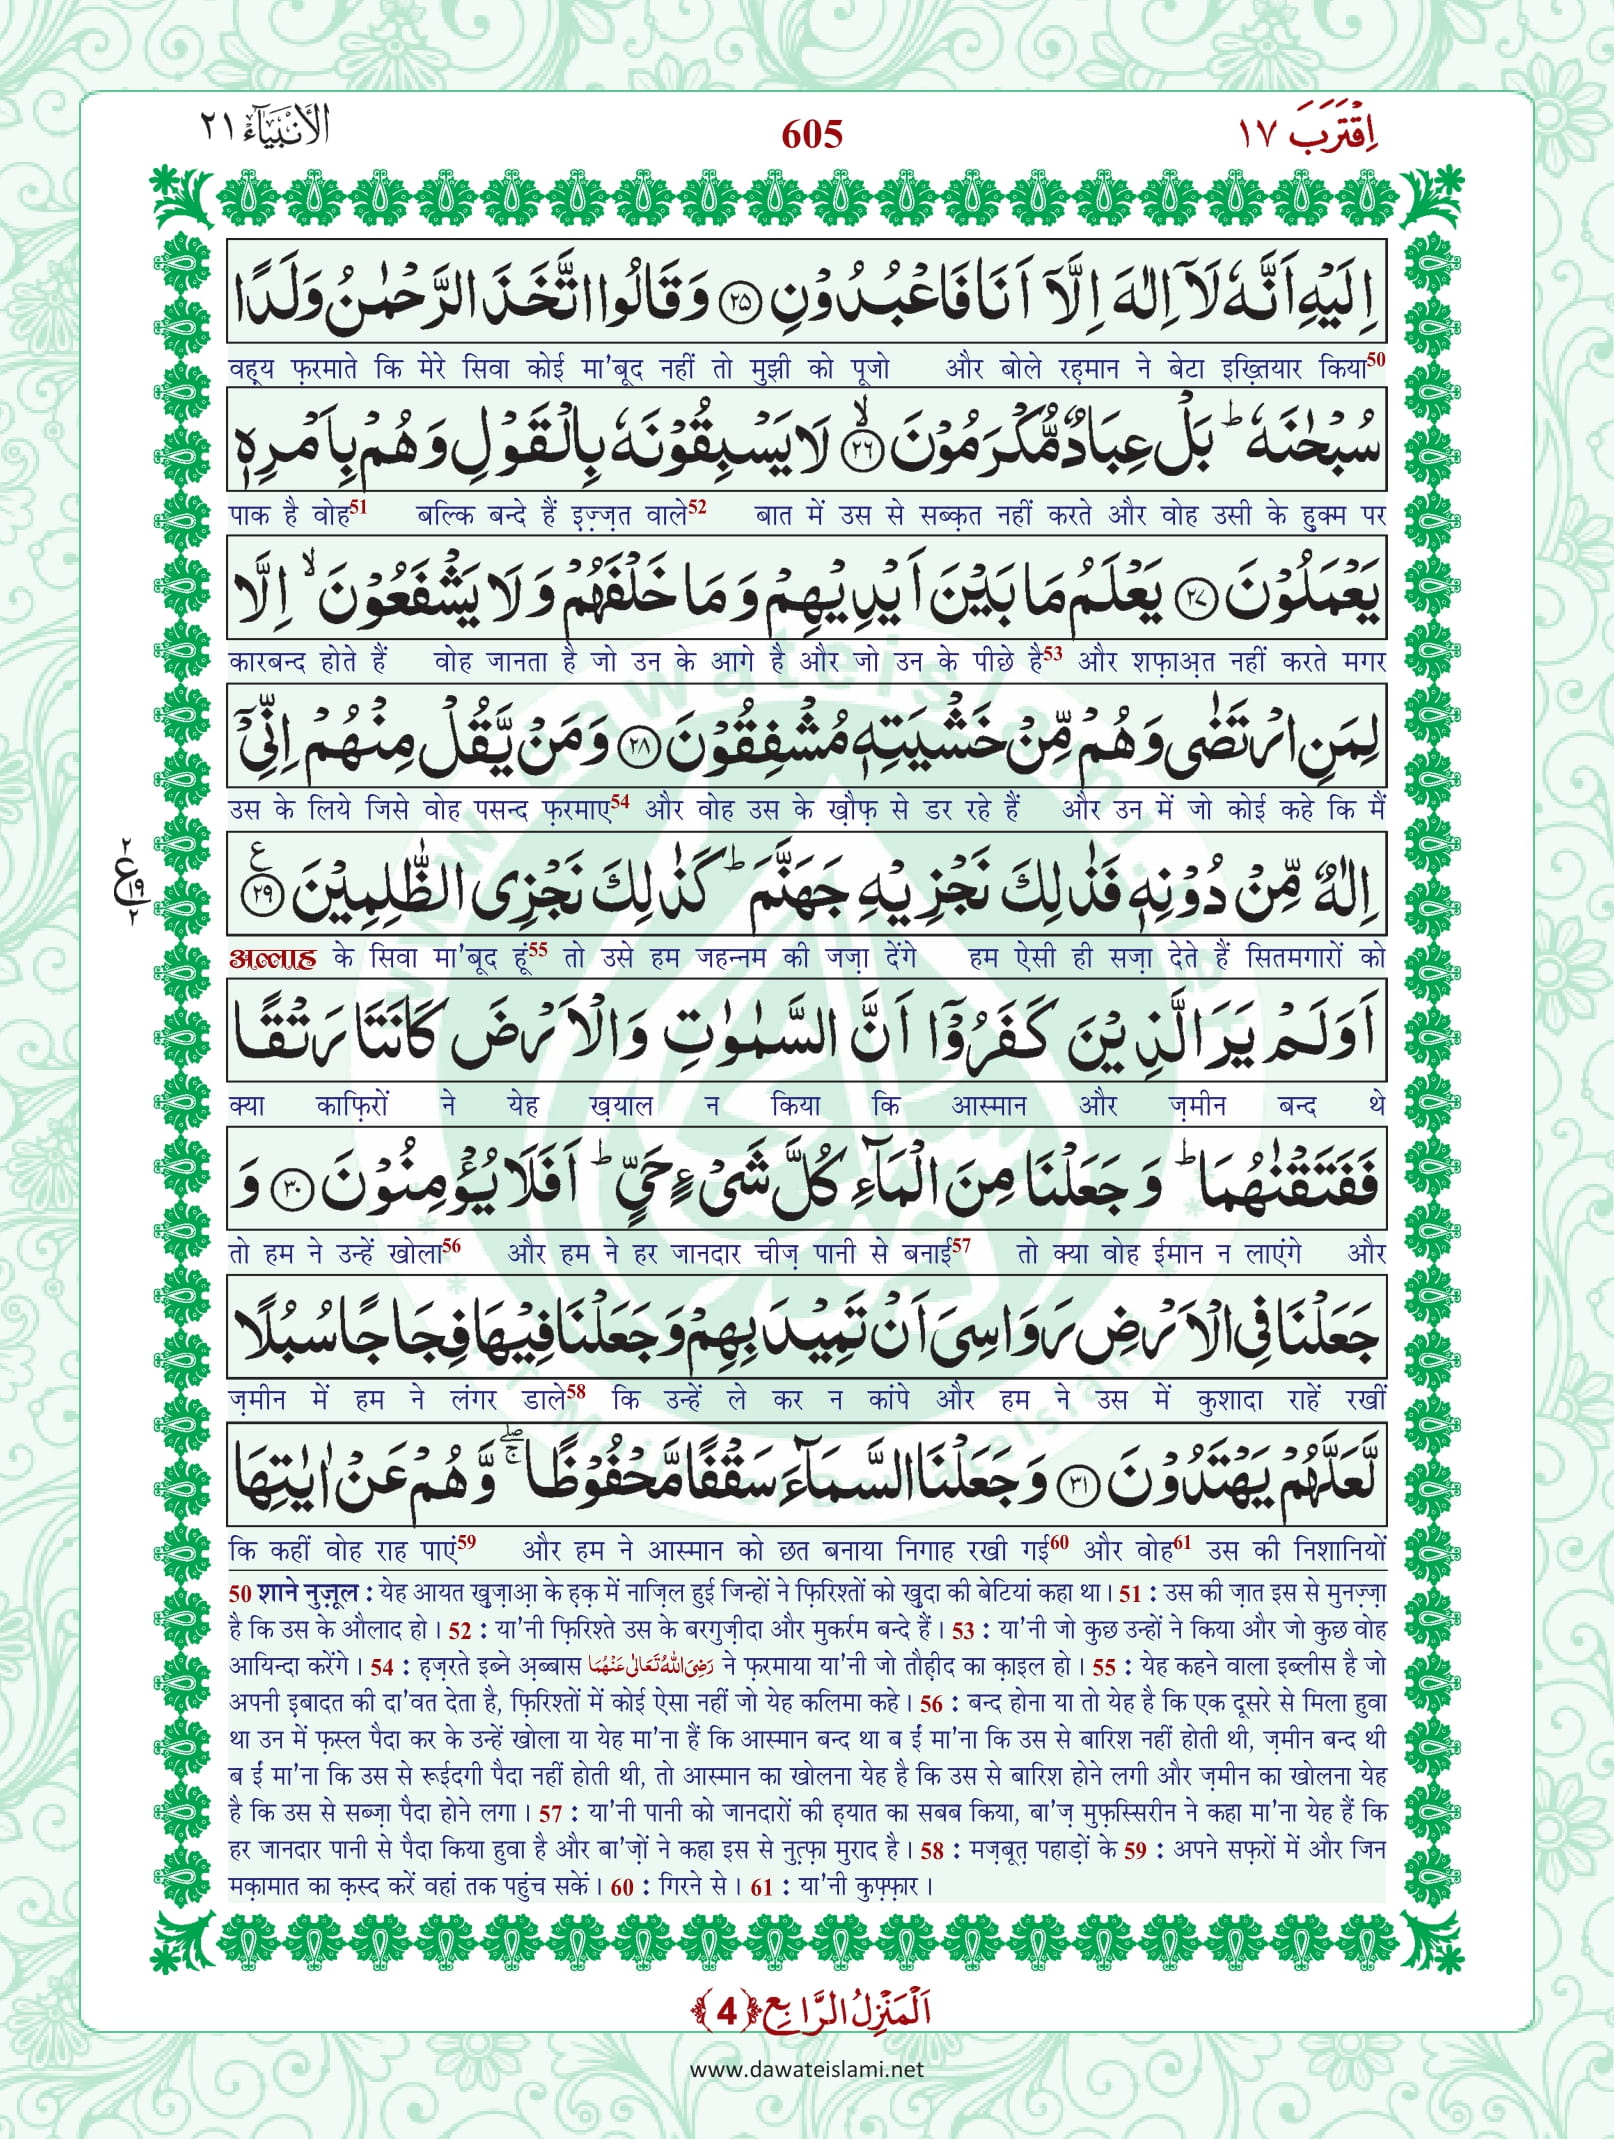 اِقْتَرَبَ ١٧
605
الْاَنْۢبِيَآء ٢١
اِلَيْهِ اَنَّهٗ لَاۤ اِلٰهَ اِلَّاۤ اَنَا فَاعْبُدُوْنِ ﴿٢٥﴾ وَ قَالُوا اتَّخَذَ الرَّحْمٰنُ وَلَدًا
वह़्य फ़रमाते कि मेरे सिवा कोई मा'बूद नहीं तो मुझी को पूजो और बोले रह़मान ने बेटा इख़्तियार किया50
سُبْحٰنَهٗ ؕ بَلْ عِبَادٌ مُّكْرَمُوْنَ ﴿٢٦﴾ۙ لَا يَسْبِقُوْنَهٗ بِالْقَوْلِ وَ هُمْ بِاَمْرِهٖ
पाक है वोह51 बल्कि बन्दे हैं इ़ज़्ज़त वाले52 बात में उस से सब्क़त नहीं करते और वोह उसी के हुक्म पर
يَعْمَلُوْنَ ﴿٢٧﴾ يَعْلَمُ مَا بَيْنَ اَيْدِيْهِمْ وَ مَا خَلْفَهُمْ وَ لَا يَشْفَعُوْنَ ۙ اِلَّا
कारबन्द होते हैं वोह जानता है जो उन के आगे है और जो उन के पीछे है53 और शफ़ाअ़त नहीं करते मगर
لِمَنِ ارْتَضٰى وَ هُمْ مِّنْ خَشْيَتِهٖ مُشْفِقُوْنَ ﴿٢٨﴾ وَ مَنْ يَّقُلْ مِنْهُمْ اِنِّيْۤ
उस के लिये जिसे वोह पसन्द फ़रमाए54 और वोह उस के ख़ौफ़ से डर रहे हैं और उन में जो कोई कहे कि मैं
٢ ع ١٩ ٢
اِلٰهٌ مِّنْ دُوْنِهٖ فَذٰلِكَ نَجْزِيْهِ جَهَنَّمَ ؕ كَذٰلِكَ نَجْزِى الظّٰلِمِيْنَ ﴿٢٩﴾ ع
अल्लाह के सिवा मा'बूद हूं55 तो उसे हम जहन्नम की जज़ा देंगे हम ऐसी ही सज़ा देते हैं सितमगारों को
اَوَ لَمْ يَرَ الَّذِيْنَ كَفَرُوْۤا اَنَّ السَّمٰوٰتِ وَ الْاَرْضَ كَانَتَا رَتْقًا
क्या काफ़िरों ने येह ख़याल न किया कि आस्मान और ज़मीन बन्द थे
فَفَتَقْنٰهُمَا ؕ وَ جَعَلْنَا مِنَ الْمَآءِ كُلَّ شَىْءٍ حَىٍّ ؕ اَفَلَا يُؤْمِنُوْنَ ﴿٣٠﴾ وَ
तो हम ने उन्हें खोला56 और हम ने हर जानदार चीज़ पानी से बनाई57 तो क्या वोह ईमान न लाएंगे और
جَعَلْنَا فِى الْاَرْضِ رَوَاسِىَ اَنْ تَمِيْدَ بِهِمْ وَ جَعَلْنَا فِيْهَا فِجَاجًا سُبُلًا
ज़मीन में हम ने लंगर डाले58 कि उन्हें ले कर न कांपे और हम ने उस में कुशादा राहें रखीं
لَّعَلَّهُمْ يَهْتَدُوْنَ ﴿٣١﴾ وَ جَعَلْنَا السَّمَآءَ سَقْفًا مَّحْفُوْظًا ۚۖ وَّ هُمْ عَنْ اٰيٰتِهَا
कि कहीं वोह राह पाएं59 और हम ने आस्मान को छत बनाया निगाह रखी गई60 और वोह61 उस की निशानियों
50 शाने नुज़ूल : येह आयत खुज़ाआ़ के ह़क़ में नाज़िल हुई जिन्हों ने फ़िरिश्तों को खुदा की बेटियां कहा था। 51 : उस की ज़ात इस से मुनज़्ज़ा
है कि उस के औलाद हो। 52 : या'नी फ़िरिश्ते उस के बरगुज़ीदा और मुकर्रम बन्दे हैं। 53 : या'नी जो कुछ उन्हों ने किया और जो कुछ वोह
आयिन्दा करेंगे। 54 : ह़ज़रते इब्ने अ़ब्बास رَضِىَ اللهُ تَعَالٰى عَنْهُمَا ने फ़रमाया या'नी जो तौह़ीद का क़ाइल हो। 55 : येह कहने वाला इब्लीस है जो
अपनी इ़बादत की दा'वत देता है, फ़िरिश्तों में कोई ऐसा नहीं जो येह कलिमा कहे। 56 : बन्द होना या तो येह है कि एक दूसरे से मिला हुवा
था उन में फ़स्ल पैदा कर के उन्हें खोला या येह मा'ना हैं कि आस्मान बन्द था ब ईं मा'ना कि उस से बारिश नहीं होती थी, ज़मीन बन्द थी
ब ईं मा'ना कि उस से रूईदगी पैदा नहीं होती थी, तो आस्मान का खोलना येह है कि उस से बारिश होने लगी और ज़मीन का खोलना येह
है कि उस से सब्ज़ा पैदा होने लगा। 57 : या'नी पानी को जानदारों की ह़यात का सबब किया, बा'ज़ मुफ़स्सिरीन ने कहा मा'ना येह हैं कि
हर जानदार पानी से पैदा किया हुवा है और बा'ज़ों ने कहा इस से नुत़्फ़ा मुराद है। 58 : मज़बूत़ पहाड़ों के 59 : अपने सफ़रों में और जिन
मक़ामात का क़स्द करें वहां तक पहुंच सकें। 60 : गिरने से। 61 : या'नी कुफ़्फ़ार।
اَلْمَنْزِلُ الرَّابِع ﴿4﴾
www.dawateislami.net